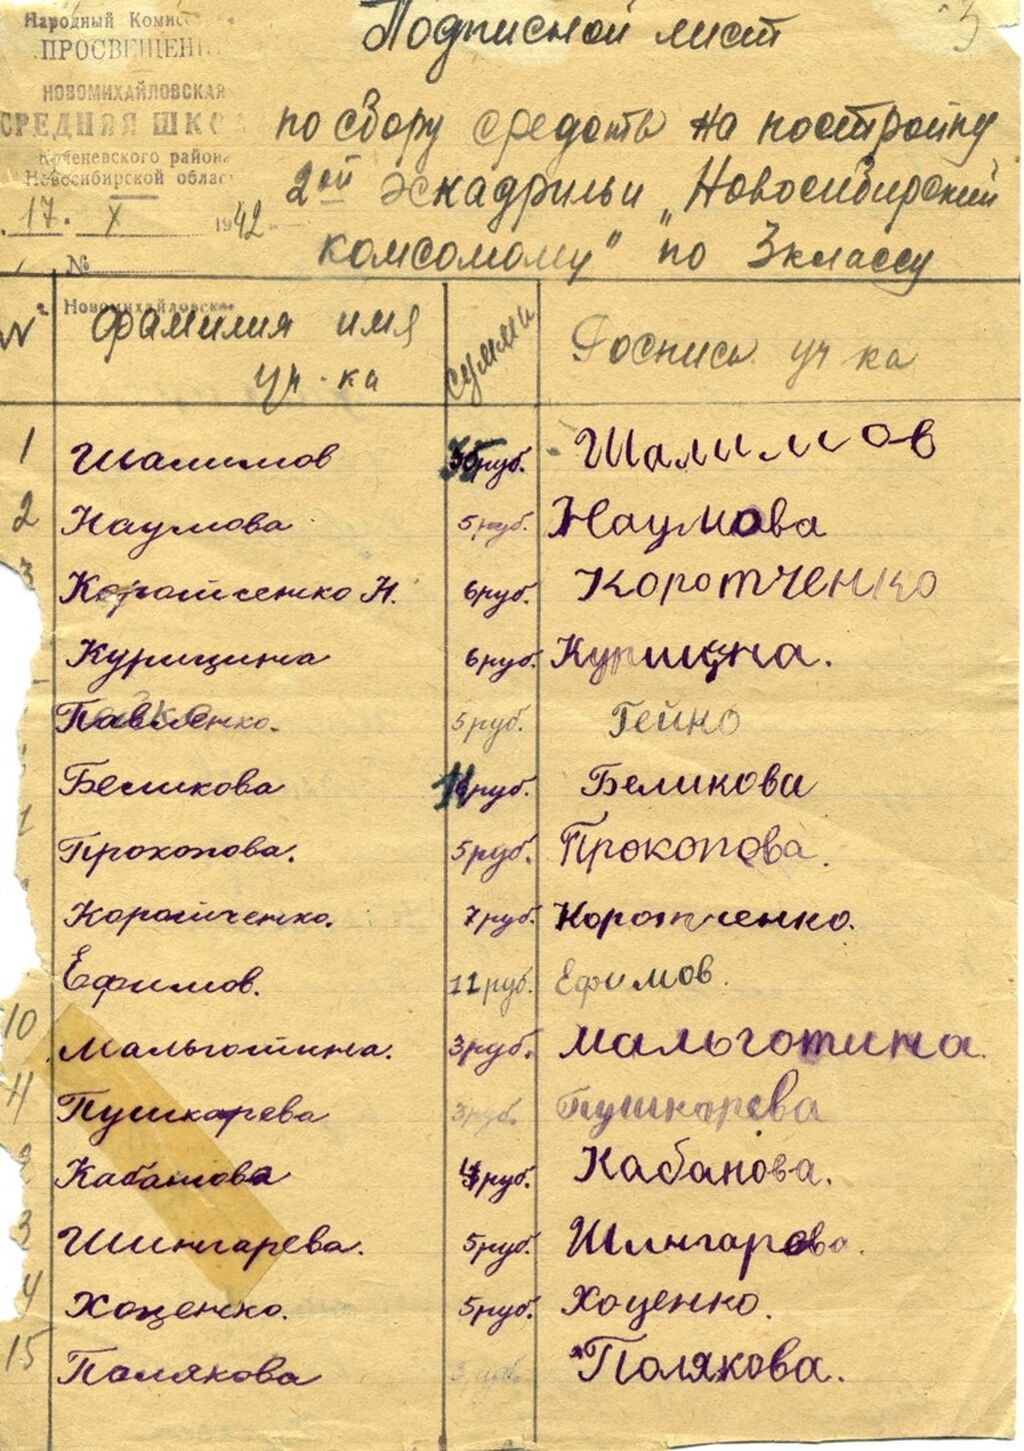 Народный Комис
ПРОСВЕЩЕНИ
НОВОМИХАЙЛОВСКАЯ
СРЕДНЯЯ ШКО
Коченевского района
Новосибирской облас
17. X 1942
№
Новомихайловск
Подписной лист
по сбору средств на постройку
2ой эскадрильи „Новосибирский
комсомолу" по 3 классу
№ Фамилия имя уч-ка сумми Роспись уч ка
1 Шалимов руб. Шалимов
2 Наумова 5 руб. Наумова
3 Коротченко Н. 6 руб. Коротченко
Курицина 6 руб. Курицина.
Павленко. 5 руб. Гейно
Беликова руб. Беликова
Прокопова. 5 руб. Прокопова.
Коротченко. 7 руб. Коротченко.
Ефимов. 11 руб. Ефимов.
10 Мальготина. 3 руб. Мальготина.
11 Пушкарева 3 руб. Пушкарева
2 Кабанова руб. Кабанова.
3 Шингарева. 5 руб. Шингарева.
4 Хоценко. 5 руб. Хоценко.
15 Полякова руб. Полякова.